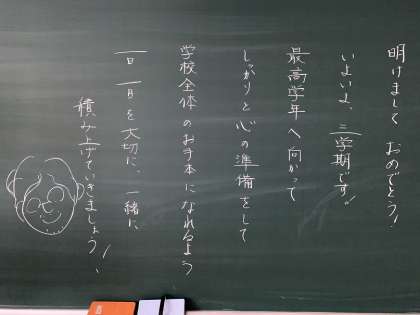 明けましておめでとう!
いよいよ、三学期です!
最高学年へ向かって
しっかりと心の準備をして
学校全体のお手本になれるよう
一日一日を大切に、一緒に
積み上げていきましょう!